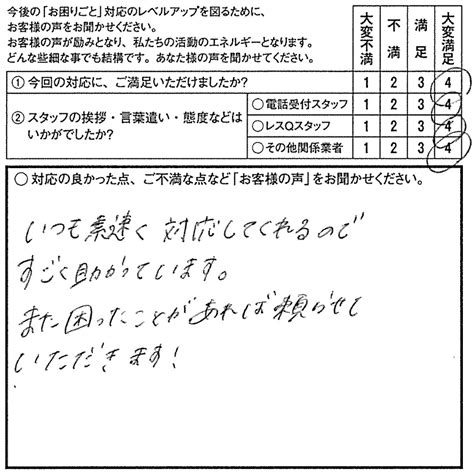 今後の「お困りごと」対応のレベルアップを図るために、
お客様の声をお聞かせください。
お客様の声が励みとなり、私たちの活動のエネルギーとなります。
どんな些細な事でも結構です。あなた様の声をお聞かせください。
大変不満 不満 満足 大変満足
① 今回の対応に、ご満足いただけましたか? 1 2 3 4
② スタッフの挨拶・言葉遣い・態度などは
いかがでしたか?
○電話受付スタッフ 1 2 3 4
○レスQスタッフ 1 2 3 4
○その他関係業者 1 2 3 4
○ 対応の良かった点、ご不満な点など「お客様の声」をお聞かせください。
いつも素速く対応してくれるので
すごく助かっています。
また困ったことがあれば頼らせて
いただきます!